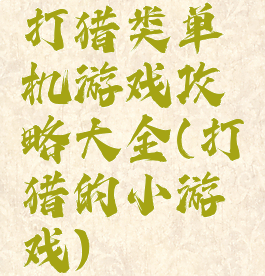 打猎类单
机游戏攻
略大全(打
猎的小游
戏)